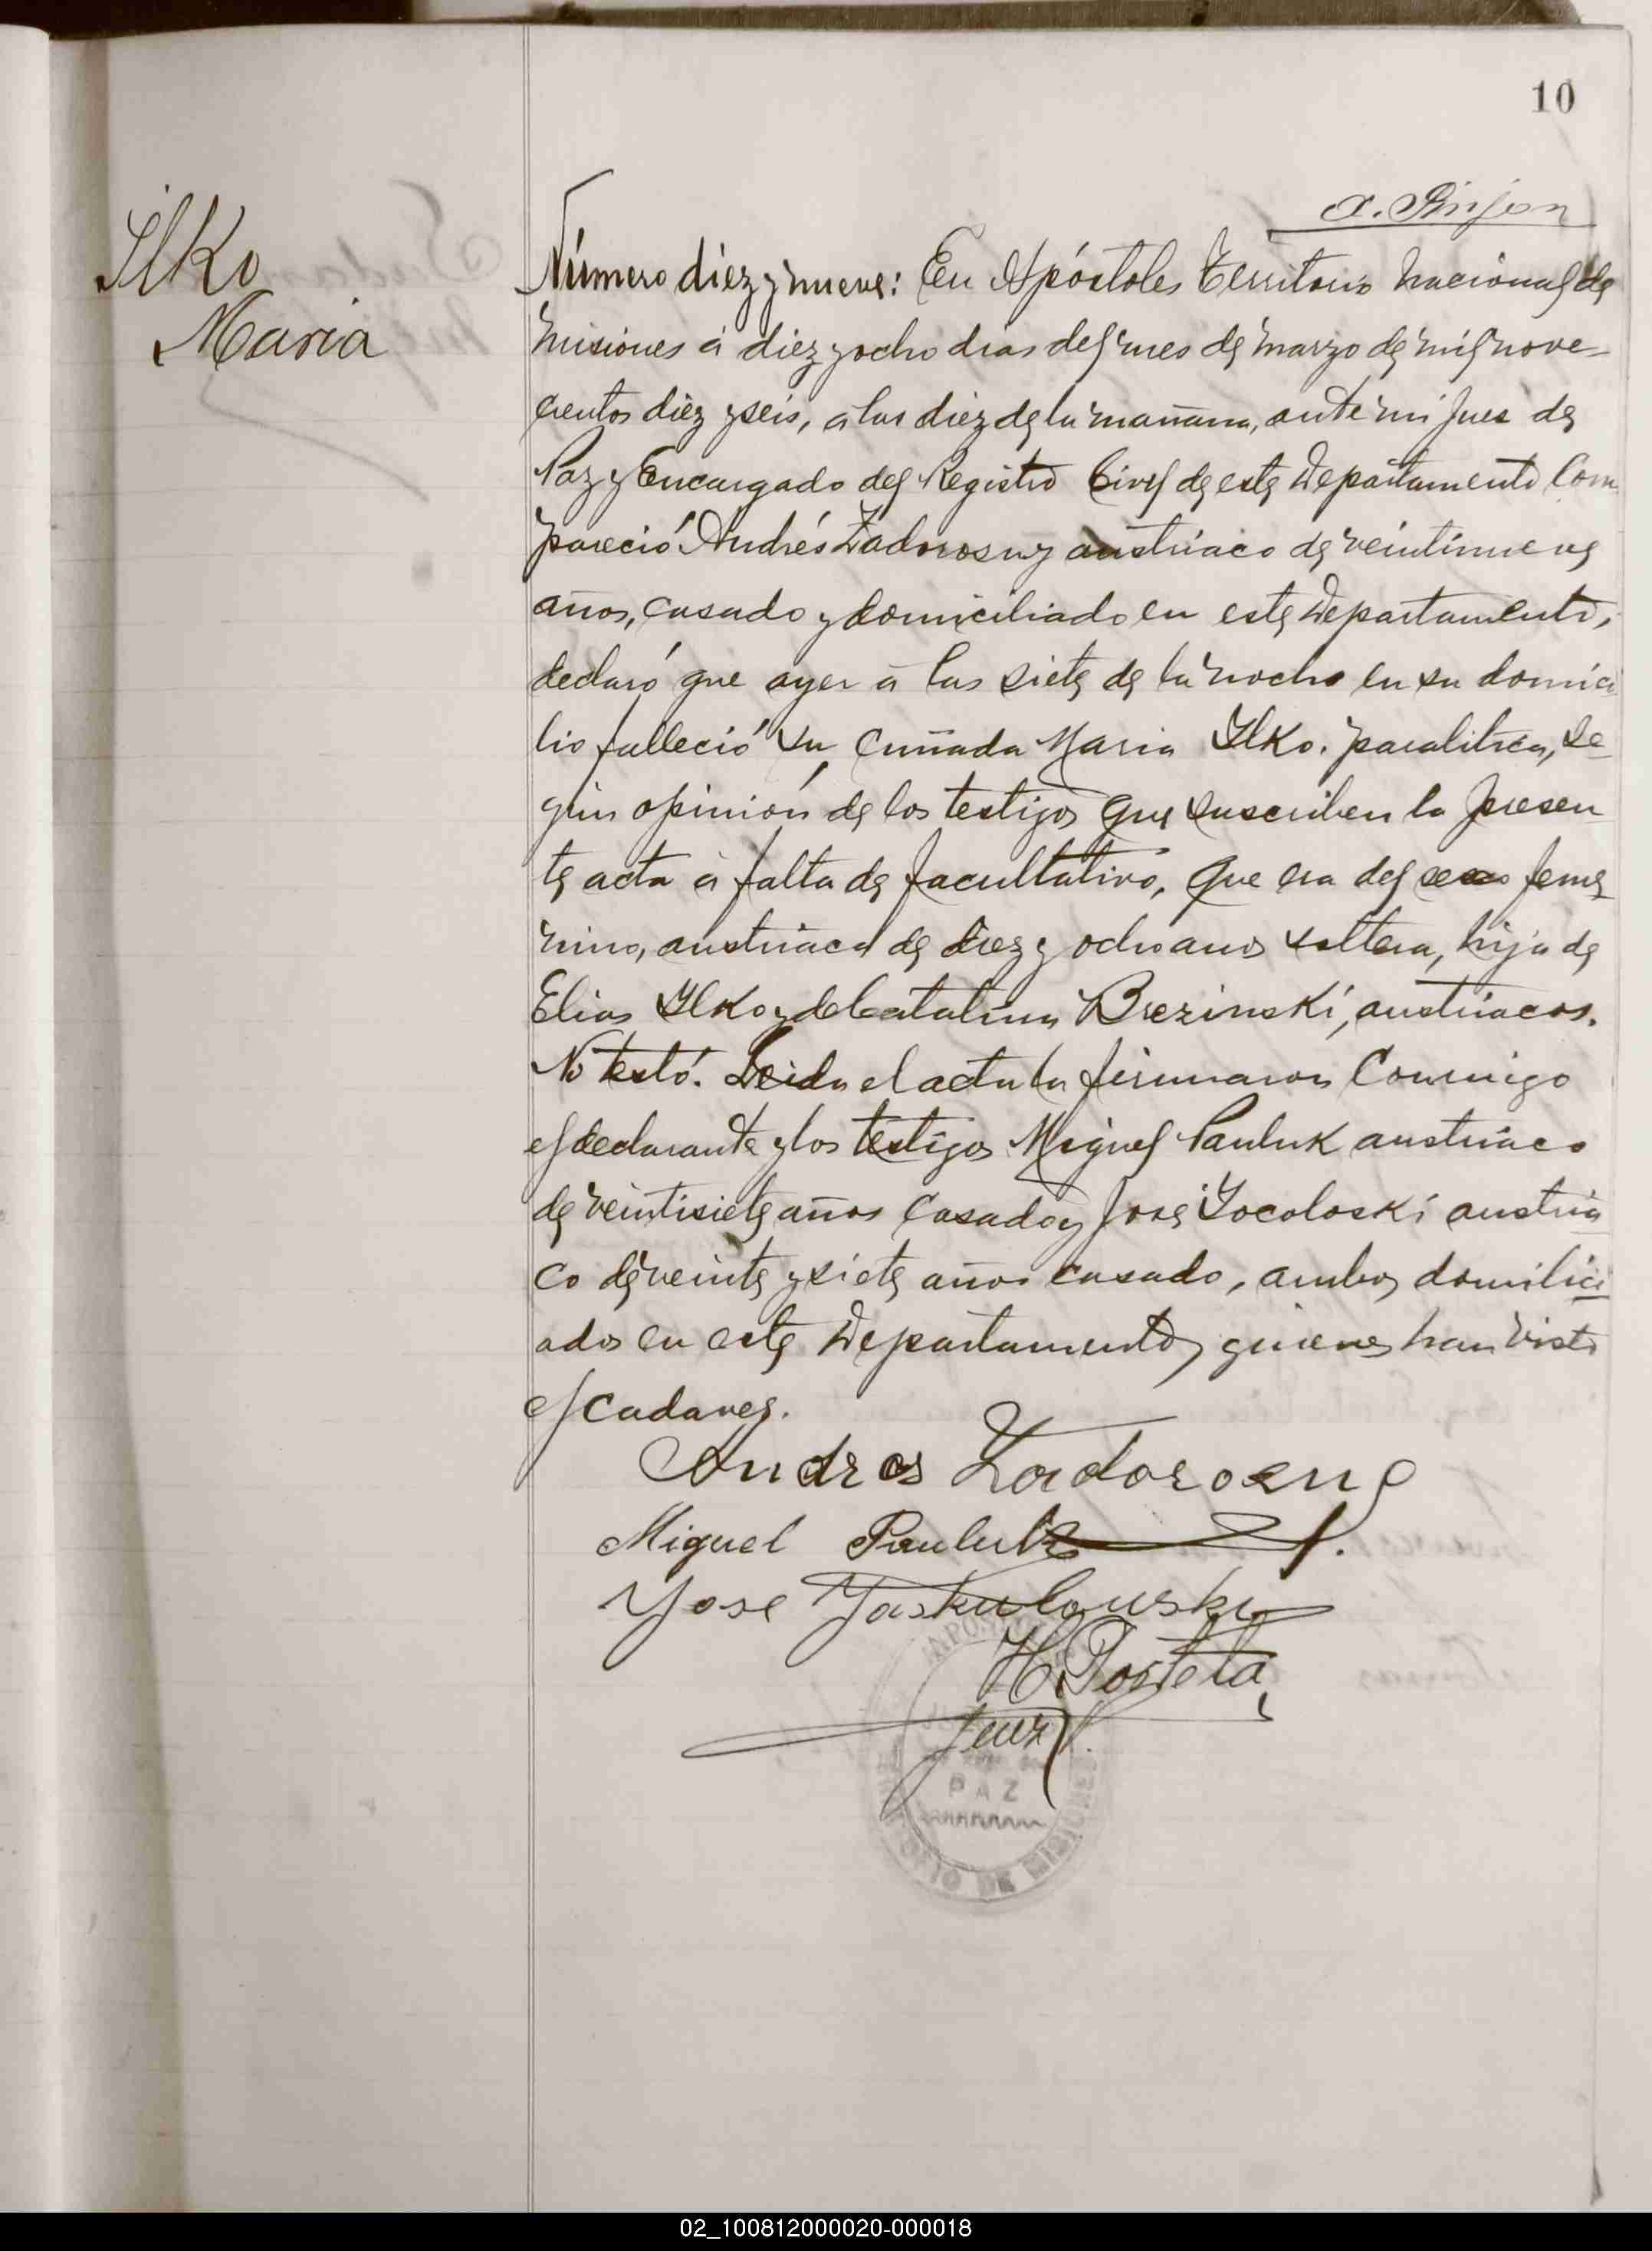 10
Ilko
Maria
Número diez y nueve: En Apóstoles Territorio Nacional de
Misiones á diez y ocho dias del mes de Marzo de mil nove-
cientos diez y seis, a las diez de la mañana, ante mi Jues de
Paz y Encargado del Registro Civil de este Departamento Com
pareció Andrés Zadorosny austriaco de veintinueve
años, casado y domiciliado en este Departamento,
declaró que ayer á las siete de la noche en su domici
lio falleció su cuñada Maria Ilko. paralitica, se-
gún opinión de los testigos que suscriben la presen
te acta á falta de facultativo, que era del sexo feme
nino, austriaca de diez y ocho anos soltera, hija de
Elias Ilko y de Catalina Brezinski, austriacos.
No testó. Leida el acta la firmaron Conmigo
el declarante y los testigos Miguel Pauluk austriaco
de veintisiete años Casado y José Yocoloski austria
co de veinte y siete años casado, ambos domilici
ados en este Departamento, quienes han visto
el Cadaver.
Andres Zadorosny
Miguel Pauluk
Yose Jaskulouski
H. Portela
Juez P.
PAZ
TERRITORIO DE MISIONES
02_100812000020-000018